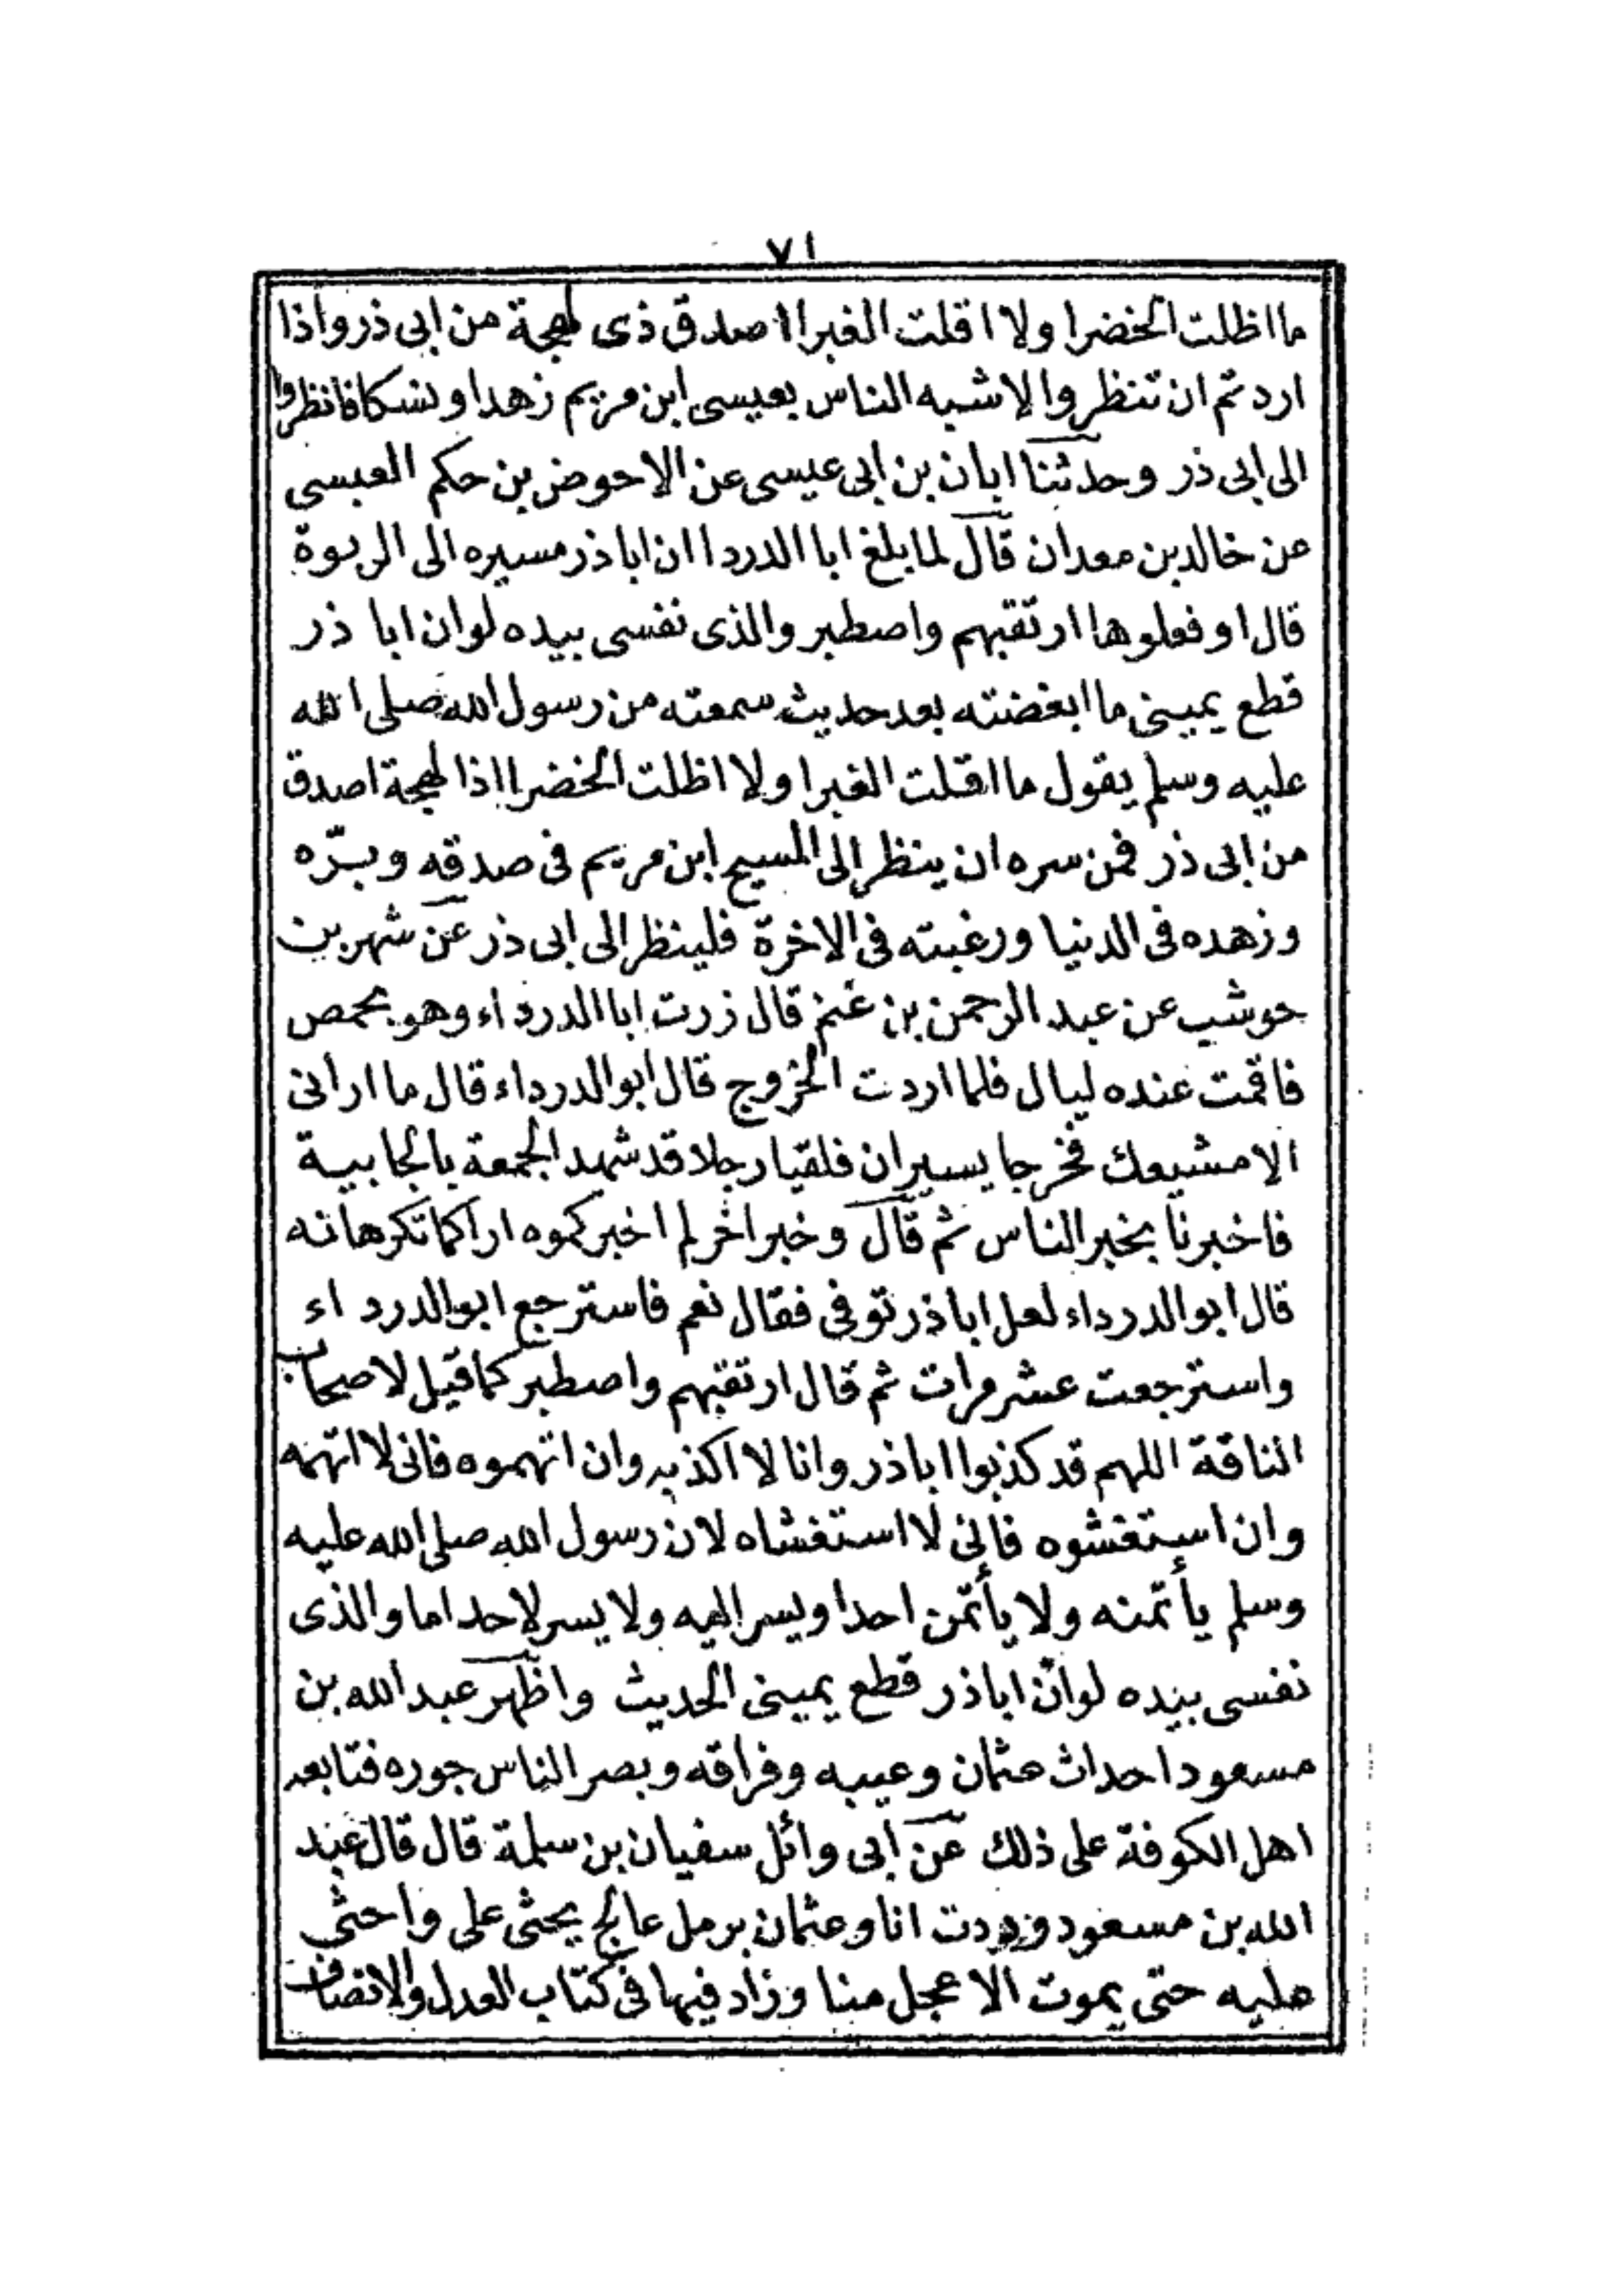 ٧١
ما اظلت الخضرا ولا اقلت الغبرا اصدق ذى لهجة من ابى ذر واذا
اردتم ان تنظروا لاشبه الناس بعيسى ابن مريم زهدا ونسكا فانظروا
الى ابى ذر وحدثنا ابان بن ابى عيسى عن الاحوض بن حكم العبسى
عن خالد بن معدان قال لما بلغ ابا الدردا ان اباذر مسيره الى الربوة
قال او فعلوها ارتقبهم واصطبر والذى نفسى بيده لو ان ابا ذر
قطع يمينى ما ابغضته بعد حديث سمعته من رسول الله صلى الله
عليه وسلم يقول ما اقلت الغبرا ولا اظلت الخضرا اذا لهجة اصدق
من ابى ذر فمن سره ان ينظر الى المسيح ابن مريم فى صدقه وبرّه
وزهده فى الدنيا ورغبته فى الاخرة فلينظر الى ابى ذر عن شهر بن
حوشب عن عبد الرحمن بن غنم قال زرت ابا الدرداء وهو بحمص
فاقمت عنده ليال فلما اردت الخروج قال ابو الدرداء قال ما ارانى
الا مشيعك فخرجا يسيران فلقيا رجلا قد شهد الجمعة بالجابية
فاخبرنا بخبر الناس ثم قال وخبر اخر لم اخبركموه اراكما تكرهانه
قال ابو الدرداء لعل اباذر توفى فقال نعم فاسترجع ابو الدرداء
واسترجعت عشر مرات ثم قال ارتقبهم واصطبر كما قيل لاصحاب
الناقة اللهم قد كذبوا اباذر وانا لا اكذبه وان اتهموه فانى لا اتهمه
وان استغشوه فانى لا استغشاه لان رسول الله صلى الله عليه
وسلم يأتمنه ولا يأتمن احدا ويسر اليه ولا يسر لاحد اما والذى
نفسى بيده لو انّ اباذر قطع يمينى الحديث واظهر عبد الله بن
مسعود احداث عثمان وعيبه وفراقه وبصر الناس جوره فتابعه
اهل الكوفة على ذلك عن ابى وائل سفيان بن سلمة قال قال عبد
الله بن مسعود وددت انا وعثمان برمل عالج يحثى على واحثى
عليه حتى يموت الاعجل منا وزاد فيها فى كتاب العدل والانصاف